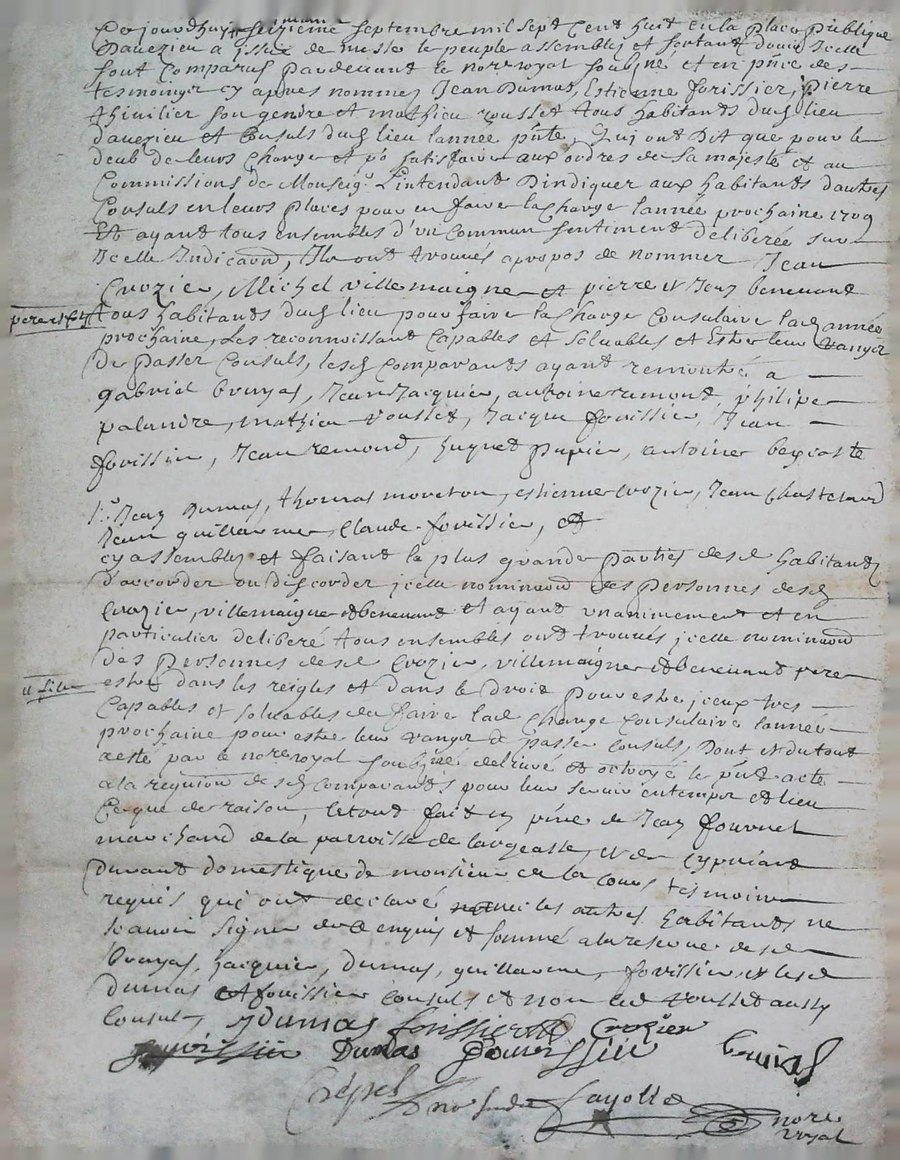 Ce jourdhuy seizieme septembre mil sept cent huit en la place publique
Davezieu a issue de messe le peuple assemblé et sortant douir Icelle
sont comparus pardevant le nore royal soubné et en pnce des
tesmoingz cy apres nommes Jean Dumas, Estienne forissier, pierre
thivilier son gendre et mathieu rousset tous habitants dud lieu
davezieu et Consuls dud lieu lannée pnte, Qui ont dit que pour le
deub de leurs charge et po satisfaire aux ordres de sa majesté et au
Commissions de Monseigr Lintendant Dindiquer aux habitants dautres
Consuls en leurs places pour en faire la charge lannée prochaine 1709
Et ayant tous ensembles d'un commun sentiment deliberée sur
Icelle Indicaon, Ils ont trouvés apropos de nommer Jean
Crozier, Michel villemaigne et pierre et Jean benevant
pere et filz
tous habitants dud lieu pour faire la charge Consulaire lad année
prochaine, Les reconnoissant Capables et soluables et Estre leur ranger
De passer Consuls, lesd Comparants ayant remontré a
gabriel bruyas, Jean Jacquier, antoine ramond, philipe
palandre, mathieu rousset, Jacque forissier, Jean
forissier, Jean remond, huguet pupier, antoine
Jean Dumas, thomas moreton, estienne Crozier, Jean Chastelard
Jean guillaume, Claude forissier, et
cy assembles et faisant la plus grande parties desd habitants
D'accorder ou discorder jcelle nominaon des personnes desd
Crozier, villemaigne et benevant et ayant unanimement et en
particulier deliberé tous ensembles ont trouvés jcelle nominaon
Des personnes desd Crozier, villemaigne et benevant pere
et filz
estre dans les reigles et dans le droit pour estre jceux tres
Capables et soluables de faire lad charge Consulaire lannée
prochaine pour estre leur ranger de passer Consuls, Dont et du tout
a esté par le nore royal soubné delivré et octroyé le pnt acte
a la requion desd Comparants pour leur servir en temps et lieu
Ce que de raison, le tout fait en pnce de Jean fournel
marchand de la parroisse de largeasse, et de cyprien
durant domestique de monsieur de la tour tesmoins
requis qui ont declaré les autres habitants ne
scavoir signer de ce enquis et sommé a la reserve desd
bruyas, Jacquier, Dumas, guillaume, forissier, et lesd
Dumas et forissier Consuls et non led rousset aussy
Consul, JDumas forissier Crozier
Dumas bruias
Crespel fayolle nore
royal